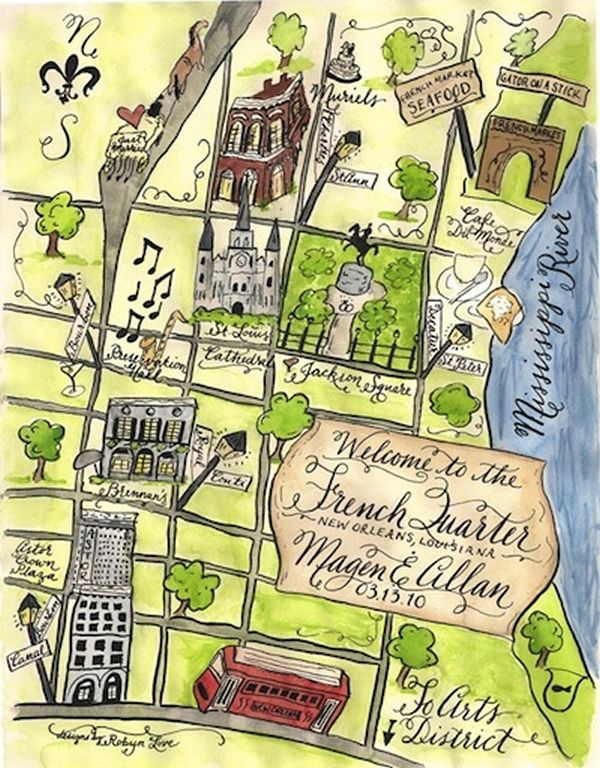 N
S
Just
Married
Muriels
Chartres
St Ann
FRENCH MARKET
SEAFOOD
GATOR ON A STICK
FRENCH MARKET
Cafe
Du Monde
Mississippi River
Bourbon
Preservation
Hall
St. Louis
Cathedral
Jackson Square
Decatur
St Peter
Royal
Conti
Brennan's
Welcome to the
French Quarter
NEW ORLEANS, LOUISIANA
Magen & Allan
03.13.10
Astor
Crown
Plaza
ASTOR
Bourbon
Canal
NEW ORLEANS
To Arts
District
Designs by Robyn Love